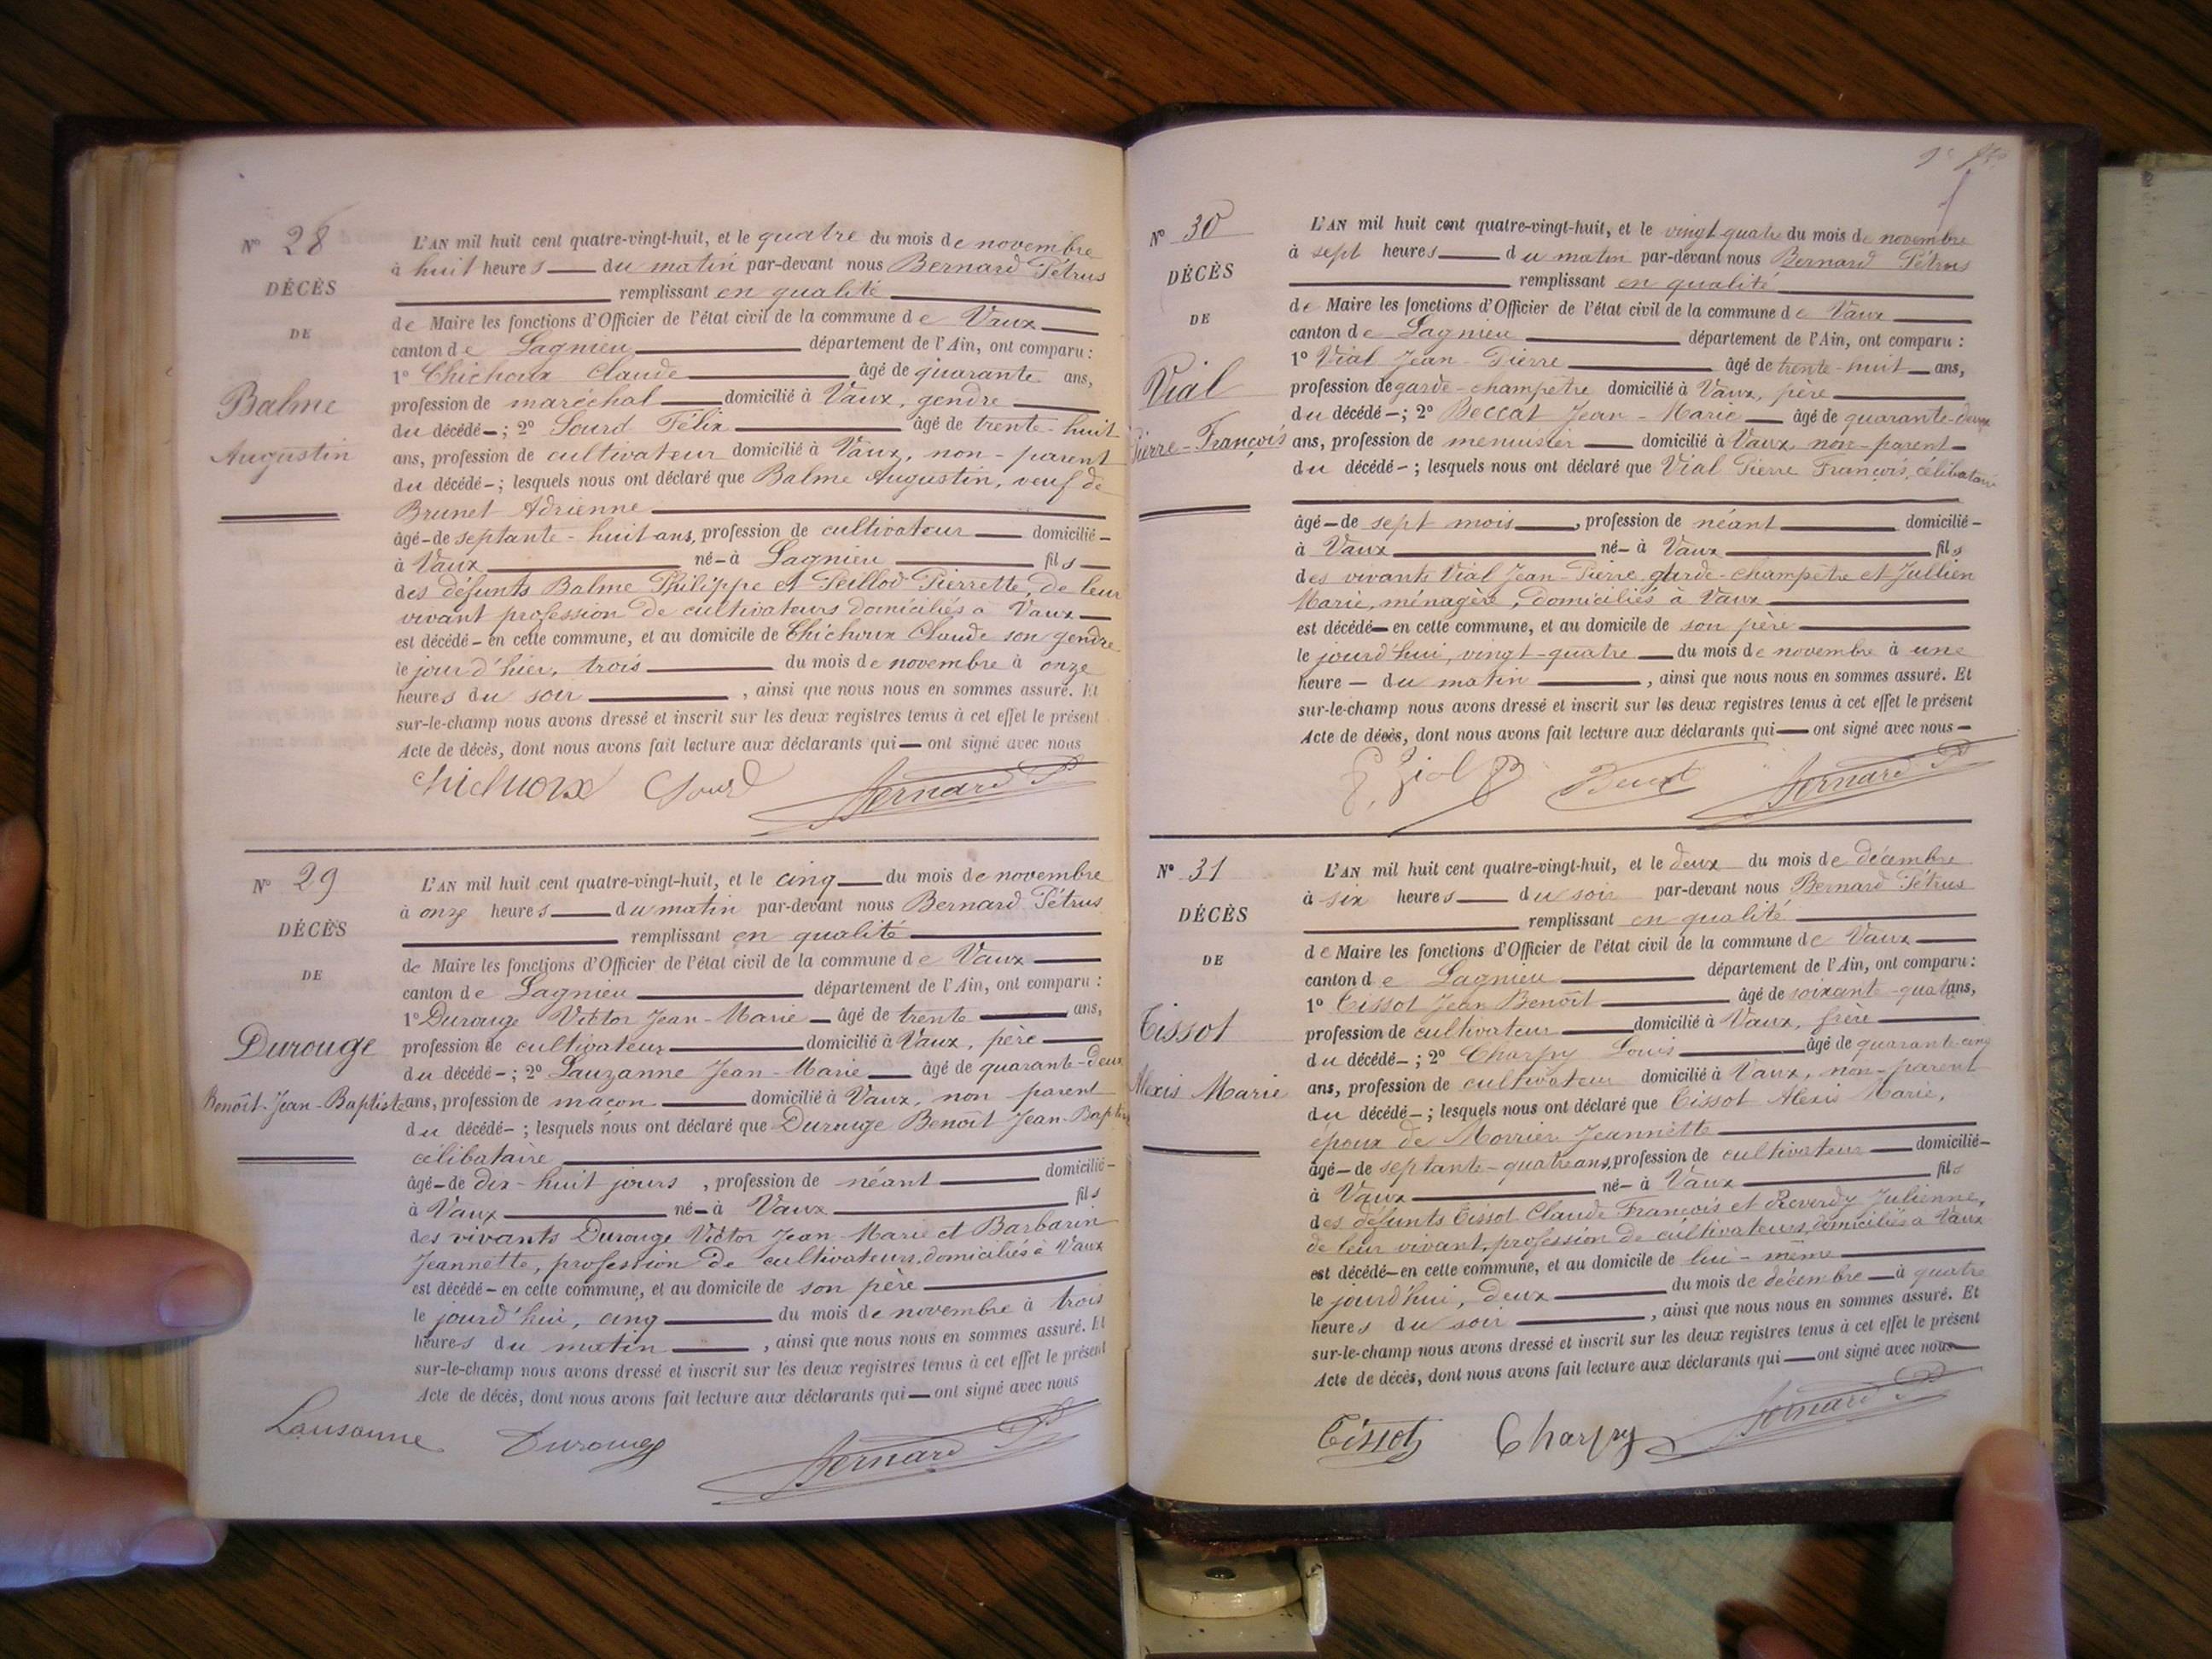 N° 28
DÉCÈS
DE
Balme
Augustin
L'AN mil huit cent quatre-vingt-huit, et le quatre du mois de novembre
à huit heures du matin par-devant nous Bernard Pétrus
remplissant en qualité
de Maire les fonctions d'Officier de l'état civil de la commune de Vaux
canton de Lagnieu département de l'Ain, ont comparu :
1° Chichoux Claude âgé de quarante ans,
profession de maréchal domicilié à Vaux, gendre
du décédé ; 2° Sourd Félix âgé de trente-huit
ans, profession de cultivateur domicilié à Vaux, non-parent
du décédé ; lesquels nous ont déclaré que Balme Augustin, veuf de
Brunet Adrienne
âgé de septante-huit ans, profession de cultivateur domicilié
à Vaux né à Lagnieu fils
des défunts Balme Philippe et Peillod Pierrette, de leur
vivant profession de cultivateurs domiciliés à Vaux
est décédé en cette commune, et au domicile de Chichoux Claude son gendre
le jour d'hier, trois du mois de novembre à onze
heures du soir, ainsi que nous nous en sommes assuré. Et
sur-le-champ nous avons dressé et inscrit sur les deux registres tenus à cet effet le présent
Acte de décès, dont nous avons fait lecture aux déclarants qui ont signé avec nous
Chichoux Sourd Bernard P
N° 29
DÉCÈS
DE
Durouge
Benoît-Jean-Baptiste
L'AN mil huit cent quatre-vingt-huit, et le cinq du mois de novembre
à onze heures du matin par-devant nous Bernard Pétrus
remplissant en qualité
de Maire les fonctions d'Officier de l'état civil de la commune de Vaux
canton de Lagnieu département de l'Ain, ont comparu :
1° Durouge Victor Jean-Marie âgé de trente ans,
profession de cultivateur domicilié à Vaux, père
du décédé ; 2° Lauzanne Jean-Marie âgé de quarante-deux
ans, profession de maçon domicilié à Vaux, non parent
du décédé ; lesquels nous ont déclaré que Durouge Benoît Jean-Baptiste
célibataire
âgé de dix-huit jours, profession de néant domicilié
à Vaux né à Vaux fils
des vivants Durouge Victor Jean-Marie et Barbarin
Jeannette, profession de cultivateurs, domiciliés à Vaux
est décédé en cette commune, et au domicile de son père
le jourd'hui, cinq du mois de novembre à trois
heures du matin, ainsi que nous nous en sommes assuré. Et
sur-le-champ nous avons dressé et inscrit sur les deux registres tenus à cet effet le présent
Acte de décès, dont nous avons fait lecture aux déclarants qui ont signé avec nous
Lausanne Durouge Bernard P
N° 30
DÉCÈS
DE
Vial
Pierre-François
L'AN mil huit cent quatre-vingt-huit, et le vingt quatre du mois de novembre
à sept heures du matin par-devant nous Bernard Pétrus
remplissant en qualité
de Maire les fonctions d'Officier de l'état civil de la commune de Vaux
canton de Lagnieu département de l'Ain, ont comparu :
1° Vial Jean-Pierre âgé de trente-huit ans,
profession de garde-champêtre domicilié à Vaux, père
du décédé ; 2° Beccat Jean-Marie âgé de quarante-deux
ans, profession de menuisier domicilié à Vaux, non-parent
du décédé ; lesquels nous ont déclaré que Vial Pierre François, célibataire
âgé de sept mois, profession de néant domicilié
à Vaux né à Vaux fils
des vivants Vial Jean-Pierre, garde-champêtre et Jullien
Marie, ménagère, domiciliés à Vaux
est décédé en cette commune, et au domicile de son père
le jourd'hui, vingt-quatre du mois de novembre à une
heure du matin, ainsi que nous nous en sommes assuré. Et
sur-le-champ nous avons dressé et inscrit sur les deux registres tenus à cet effet le présent
Acte de décès, dont nous avons fait lecture aux déclarants qui ont signé avec nous
Bernard P
N° 31
DÉCÈS
DE
Tissot
Alexis Marie
L'AN mil huit cent quatre-vingt-huit, et le deux du mois de décembre
à six heures du soir par-devant nous Bernard Pétrus
remplissant en qualité
de Maire les fonctions d'Officier de l'état civil de la commune de Vaux
canton de Lagnieu département de l'Ain, ont comparu :
1° Tissot Jean Benoît âgé de soixante-quat ans,
profession de cultivateur domicilié à Vaux, frère
du décédé ; 2° Charpy Louis âgé de quarante-cinq
ans, profession de cultivateur domicilié à Vaux, non-parent
du décédé ; lesquels nous ont déclaré que Tissot Alexis Marie,
époux de Morrier Jeannette
âgé de septante-quatre ans, profession de cultivateur domicilié
à Vaux né à Vaux fils
des défunts Tissot Claude François et Reverdy Julienne,
de leur vivant, profession de cultivateurs, domiciliés à Vaux
est décédé en cette commune, et au domicile de lui-même
le jourd'hui, deux du mois de décembre à quatre
heures du soir, ainsi que nous nous en sommes assuré. Et
sur-le-champ nous avons dressé et inscrit sur les deux registres tenus à cet effet le présent
Acte de décès, dont nous avons fait lecture aux déclarants qui ont signé avec nous
Tissot Charpy Bernard P